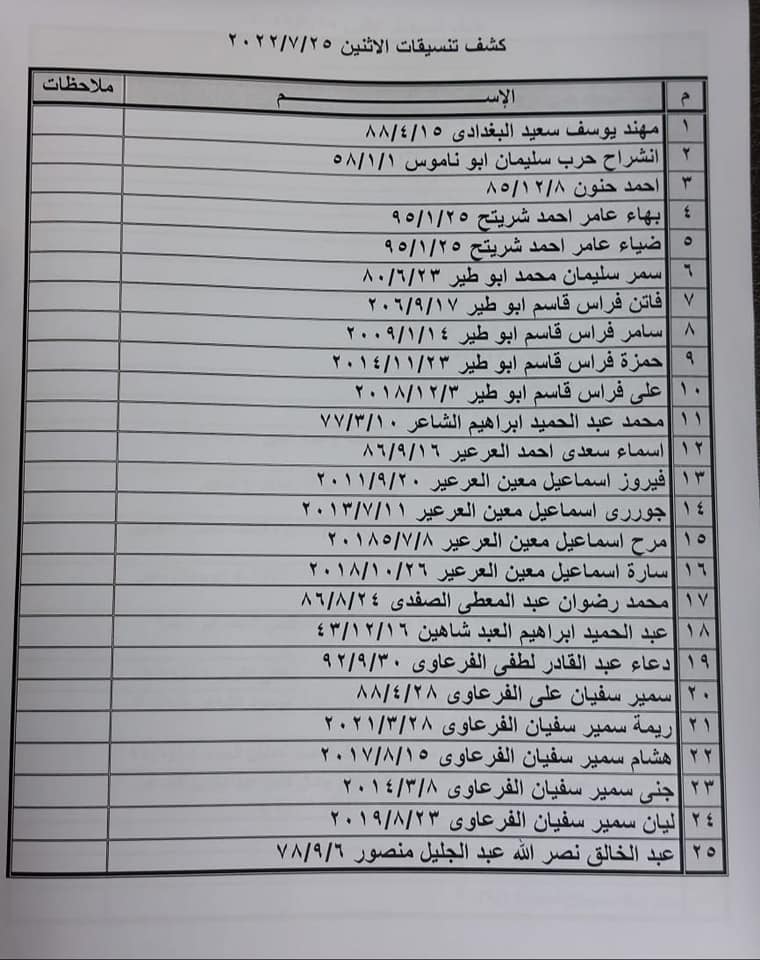 كشف تنسيقات الاثنين ٢٠٢٢/٧/٢٥
م الإســـــــــم ملاحظات
١ مهند يوسف سعيد البغدادى ٨٨/٤/١٥
٢ انشراح حرب سليمان ابو ناموس ٥٨/١/١
٣ احمد حنون ٨٥/١٢/٨
٤ بهاء عامر احمد شريتح ٩٥/١/٢٥
٥ ضياء عامر احمد شريتح ٩٥/١/٢٥
٦ سمر سليمان محمد ابو طير ٨٠/٦/٢٣
٧ فاتن فراس قاسم ابو طير ٢٠٦/٩/١٧
٨ سامر فراس قاسم ابو طير ٢٠٠٩/١/١٤
٩ حمزة فراس قاسم ابو طير ٢٠١٤/١١/٢٣
١٠ على فراس قاسم ابو طير ٢٠١٨/١٢/٣
١١ محمد عبد الحميد ابراهيم الشاعر ٧٧/٣/١٠
١٢ اسماء سعدى احمد العرعير ٨٦/٩/١٦
١٣ فيروز اسماعيل معين العرعير ٢٠١١/٩/٢٠
١٤ جوررى اسماعيل معين العرعير ٢٠١٣/٧/١١
١٥ مرح اسماعيل معين العرعير ٢٠١٨٥/٧/٨
١٦ سارة اسماعيل معين العرعير ٢٠١٨/١٠/٢٦
١٧ محمد رضوان عبد المعطى الصفدى ٨٦/٨/٢٤
١٨ عبد الحميد ابراهيم العبد شاهين ٤٣/١٢/١٦
١٩ دعاء عبد القادر لطفى الفرعاوى ٩٢/٩/٣٠
٢٠ سمير سفيان على الفرعاوى ٨٨/٤/٢٨
٢١ ريمة سمير سفيان الفرعاوى ٢٠٢١/٣/٢٨
٢٢ هشام سمير سفيان الفرعاوى ٢٠١٧/٨/١٥
٢٣ جنى سمير سفيان الفرعاوى ٢٠١٤/٣/٨
٢٤ ليان سمير سفيان الفرعاوى ٢٠١٩/٨/٢٣
٢٥ عبد الخالق نصر الله عبد الجليل منصور ٧٨/٩/٦